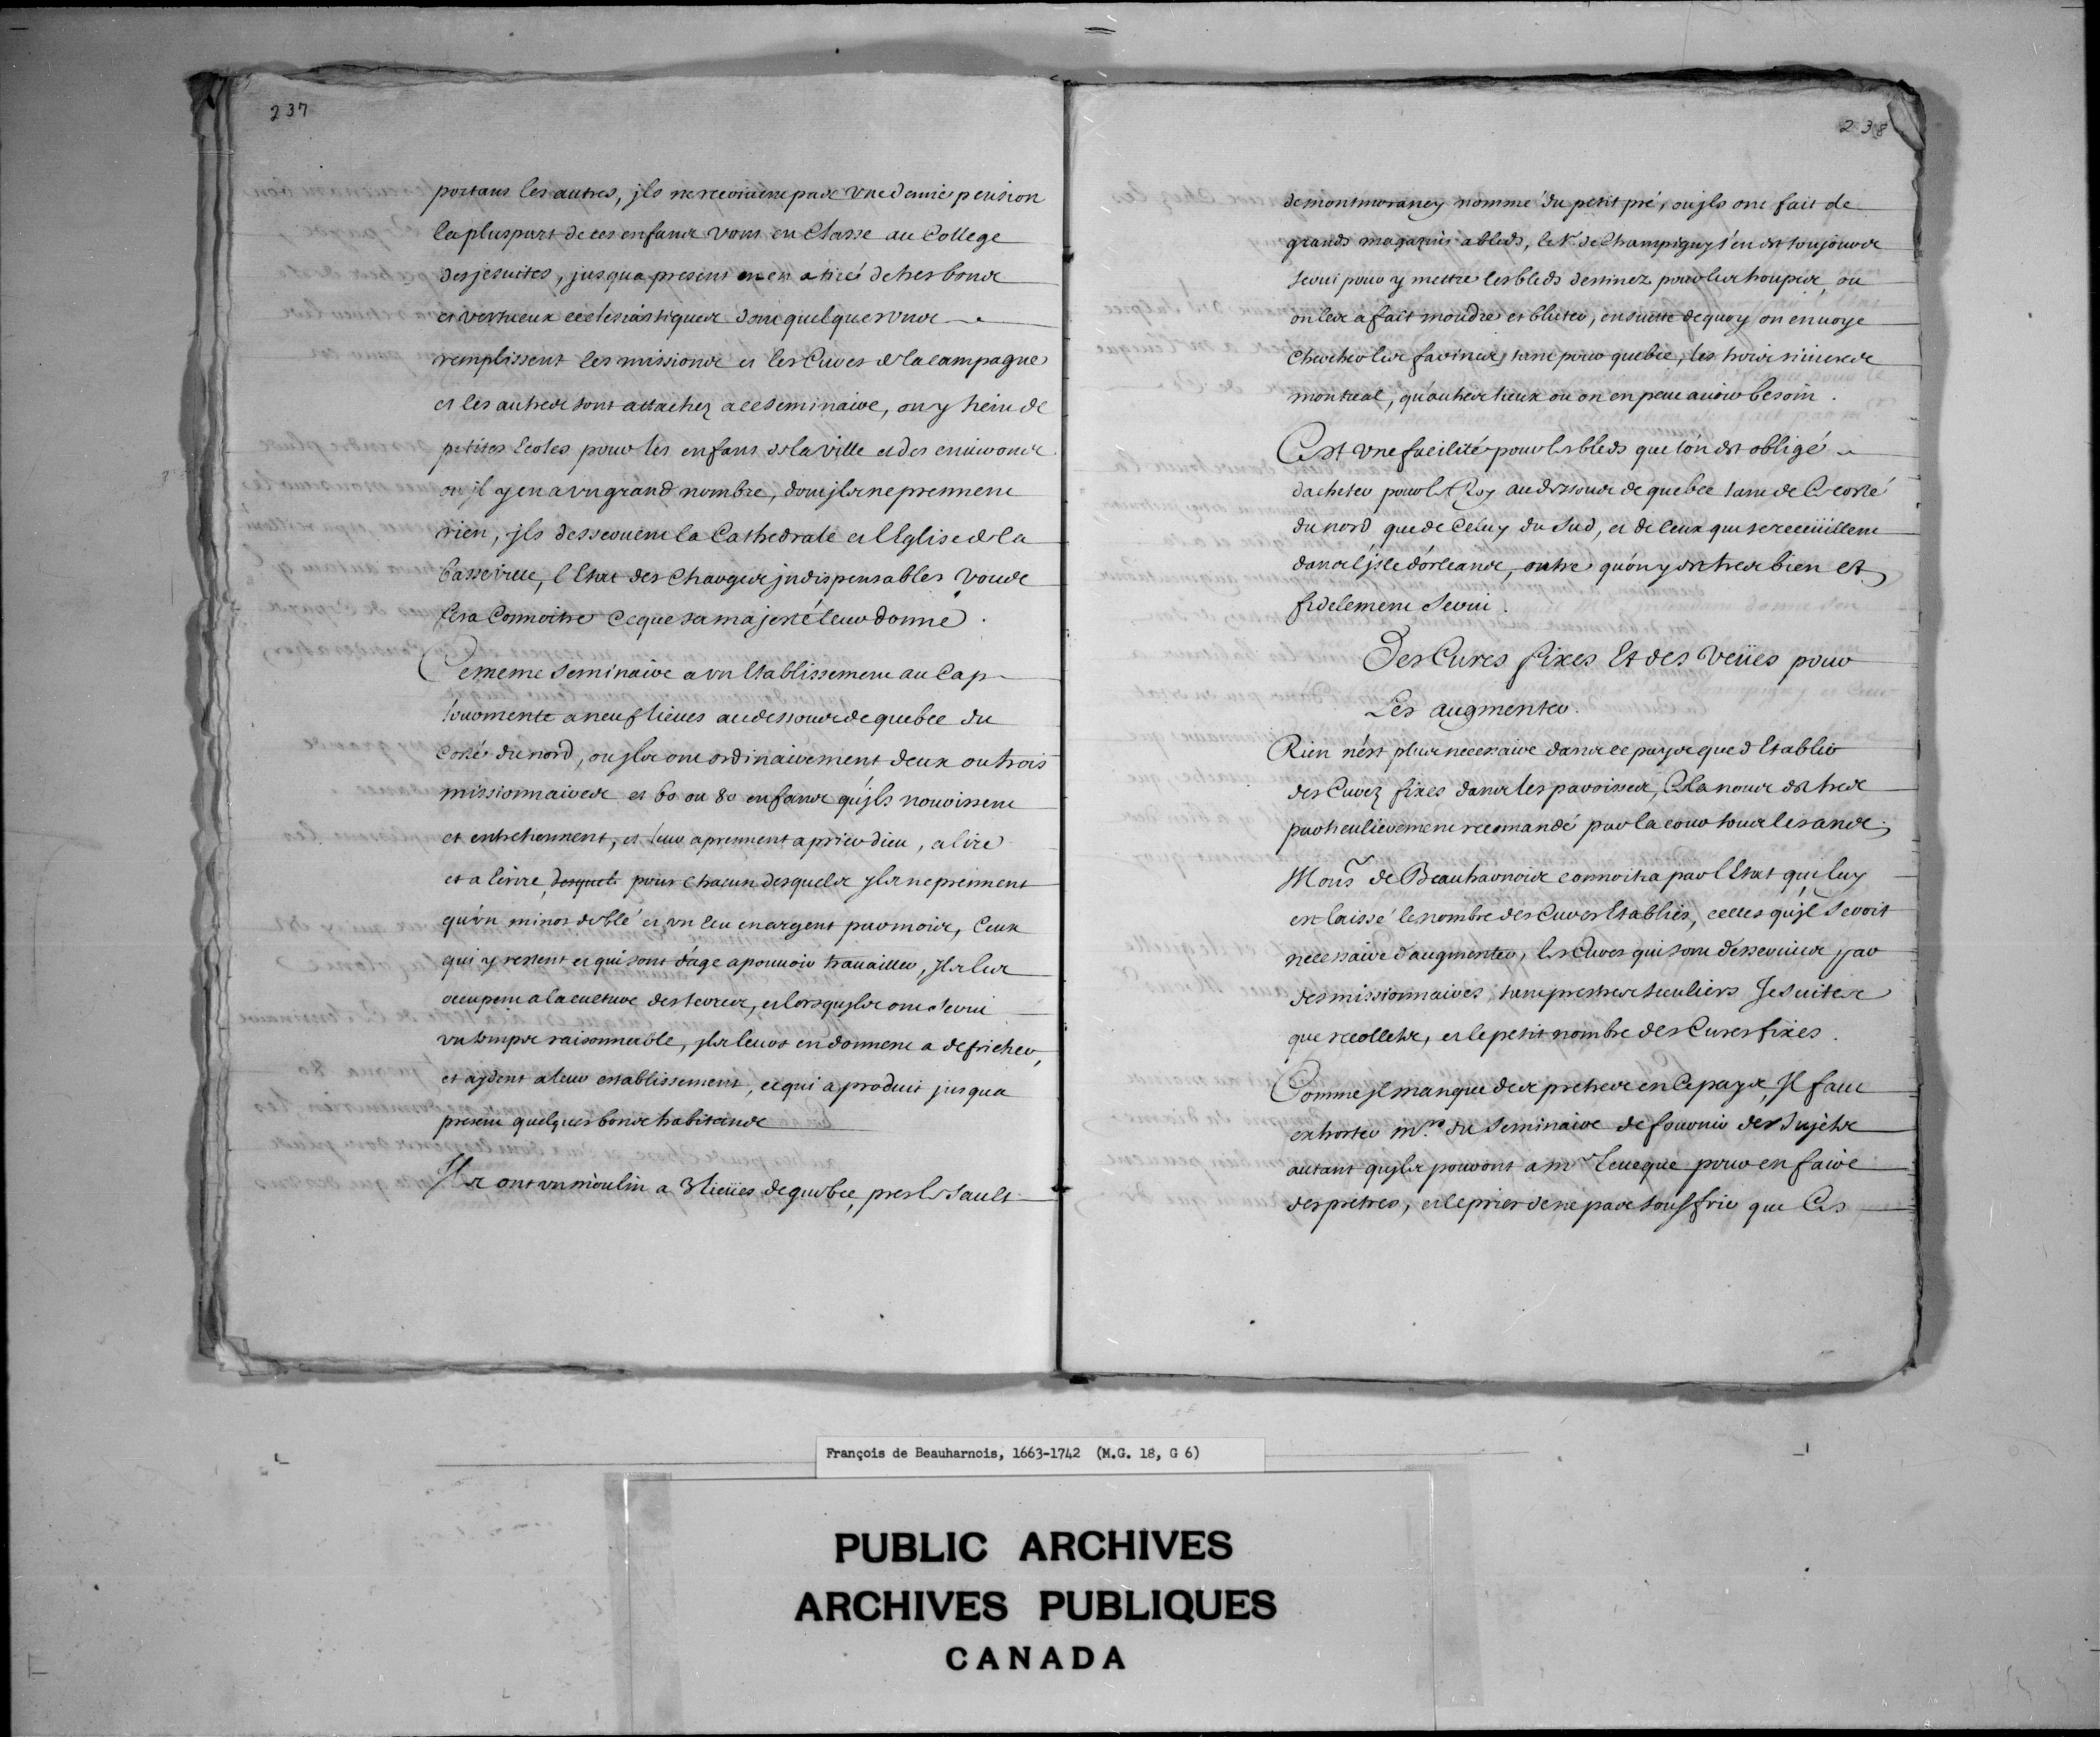 237
portans les autres, jls ne recoivent pas une demie pension
la pluspart de ces enfans vont en Classe au College
des jesuites, jusqua present on en a tiré de tres bons
et vertueux ecclesiastiques dont quelques uns
remplissent les missions et les Cures de la campagne
et les autres sont attachez a ce seminaire, on y tient de
petites Ecoles pour les enfans de la ville et des environs
ou jl y en a un grand nombre, dont jls ne prennent
rien, jls desservent la Cathedrale et l'Eglise de la
basse ville, l'Etat des Charges jndispensables vous
fera Connoitre ce que sa majesté leur donne.
Ce meme seminaire a un Etablissement au Cap
tourmente a neuf lieues audessous de quebec du
costé du nord, ou jls ont ordinairement deux ou trois
missionnaires et 60 ou 80 enfans qu'jls nourissent
et entretiennent, et leur aprennent a prier dieu, a lire
et a Ecrire, desquels pour chacun desquels jls ne prennent
qu'un minot de blé et un Ecu en argent par mois, Ceux
qui y restent et qui sont d'age a pouvoir travailler, jls les
occupent a la culture des terres, et lorsqu'jls ont servi
un temps raisonnable, jls leurs en donnent a defricher,
et aydent a leur establissement, ce qui a produit jusqua
present quelques bons habitans
Jls ont un moulin a 3 lieües de quebec, pres le Sault
238
de montmorancy nommé du petit pré, ou jls ont fait de
grands magazins a bleds, le Sr. de Champigny s'en est toujours
servi pour y mettre les bleds destinez pour les troupes, ou
on les a fait moudre et bluter, ensuitte de quoy on envoye
chercher les farines, tant pour quebec, les trois rivieres
montreal, qu'autres lieux ou on en peut avoir besoin.
C'est une facilité pour les bleds que l'on est obligé
d'acheter pour le Roy au dessous de quebec tant de Ce costé
du nord que de Celuy du Sud, et de ceux qui se receuillent
dans l'jsle d'orleans, outre qu'on y est tres bien et
fidelement servi.
Des Cures fixes Et des Veües pour
Les augmenter.
Rien n'est plus necessaire dans ce pays que d'Etablir
des Curez fixes dans les paroisses, Cela nous est tres
particulierement recomandé par la cour tous les ans.
Monsr. de Beauharnois connoitra par l'Etat qui luy
est laissé le nombre des Cures Etablies, celles qu'jl seroit
necessaire d'augmenter, les Cures qui sont desservies par
des missionnaires, tant prestres seculiers Jesuites
que recollets, et le petit nombre des Cures fixes.
Comme jl manque des pretres en Ce pays, Jl faut
exhorter Mrs. du Seminaire de fournir des Sujets
autant qu'jls pouront a Mr. l'eveque pour en faire
des pretres, et le prier de ne pas souffrir que Ces
François de Beauharnois, 1663-1742 (M.G. 18, G 6)
PUBLIC ARCHIVES
ARCHIVES PUBLIQUES
CANADA